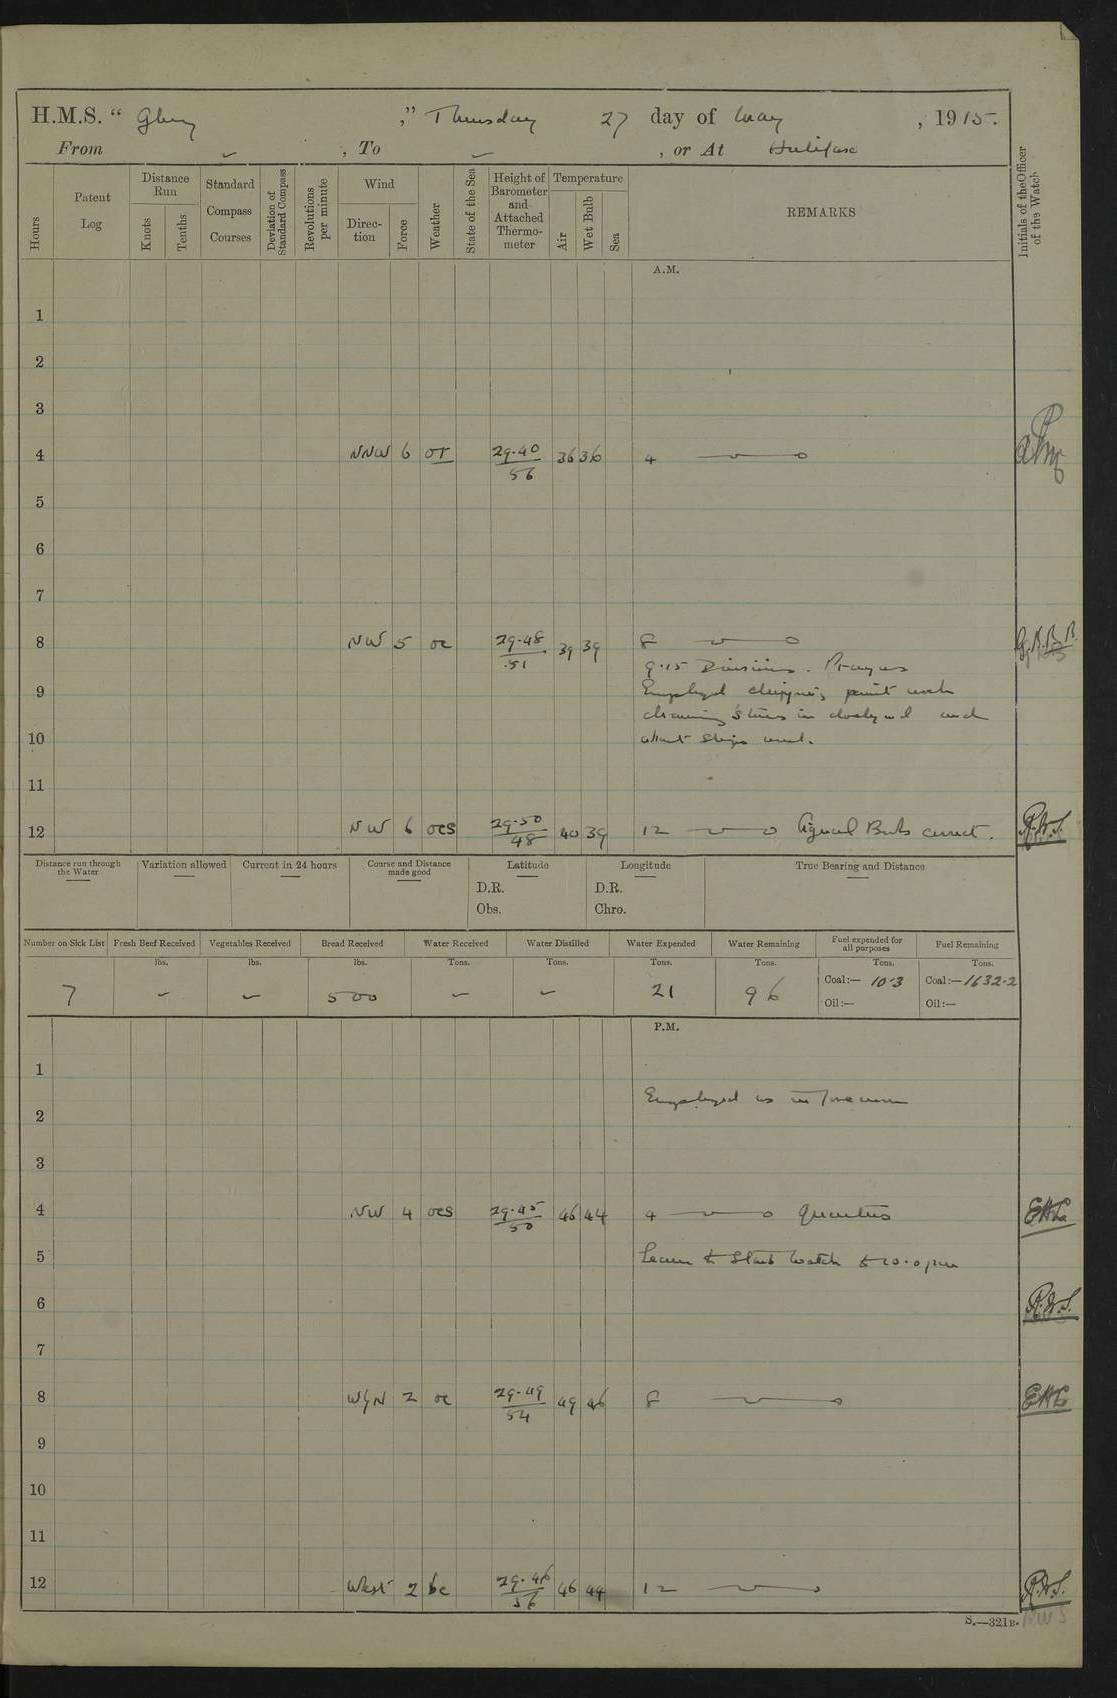 H.M.S. “ Glory ,” Thursday 27 day of May , 1915.
From ✓ , To ✓ , or At Halifax
Hours
Patent Log
Distance Run
Knots
Tenths
Standard Compass Courses
Deviation of Standard Compass
Revolutions per minute
Wind
Direc-tion
Force
Weather
State of the Sea
Height of Barometer and Attached Thermo-meter
Temperature
Air
Wet Bulb
Sea
REMARKS
Initials of the Officer of the Watch
A.M.
1
2
3
4 NNW 6 or 29.40/56 36 36 4
5
6
7
8 NW 5 oc 29.48/51 39 39 8
9.15 Divisions. Prayers
9 Employed chipping paint work
drawing stores in dockyard and
10 about ships work.
11
12 NW 6 ocs 29.50/48 40 39 12 correct. R.W.S.
Distance run through the Water
Variation allowed
Current in 24 hours
Course and Distance made good
Latitude
D.R.
Obs.
Longitude
D.R.
Chro.
True Bearing and Distance
Number on Sick List
Fresh Beef Received
Vegetables Received
Bread Received
Water Received
Water Distilled
Water Expended
Water Remaining
Fuel expended for all purposes
Fuel Remaining
lbs. lbs. lbs. Tons. Tons. Tons. Tons. Tons. Tons.
7 ✓ ✓ 500 ✓ ✓ 21 96 Coal:— 10.3 Coal:— 1632.2
Oil:— Oil:—
P.M.
1
Employed as in forenoon
2
3
4 NW 4 ocs 29.45/50 46 44 4 Quarters
5 Leave to Starb Watch to 10.0 pm
6 R.W.S.
7
8 WbyN 2 oc 29.49/54 49 46 8
9
10
11
12 West 2 bc 29.46/56 46 44 12 R.W.S.
S.—321B.